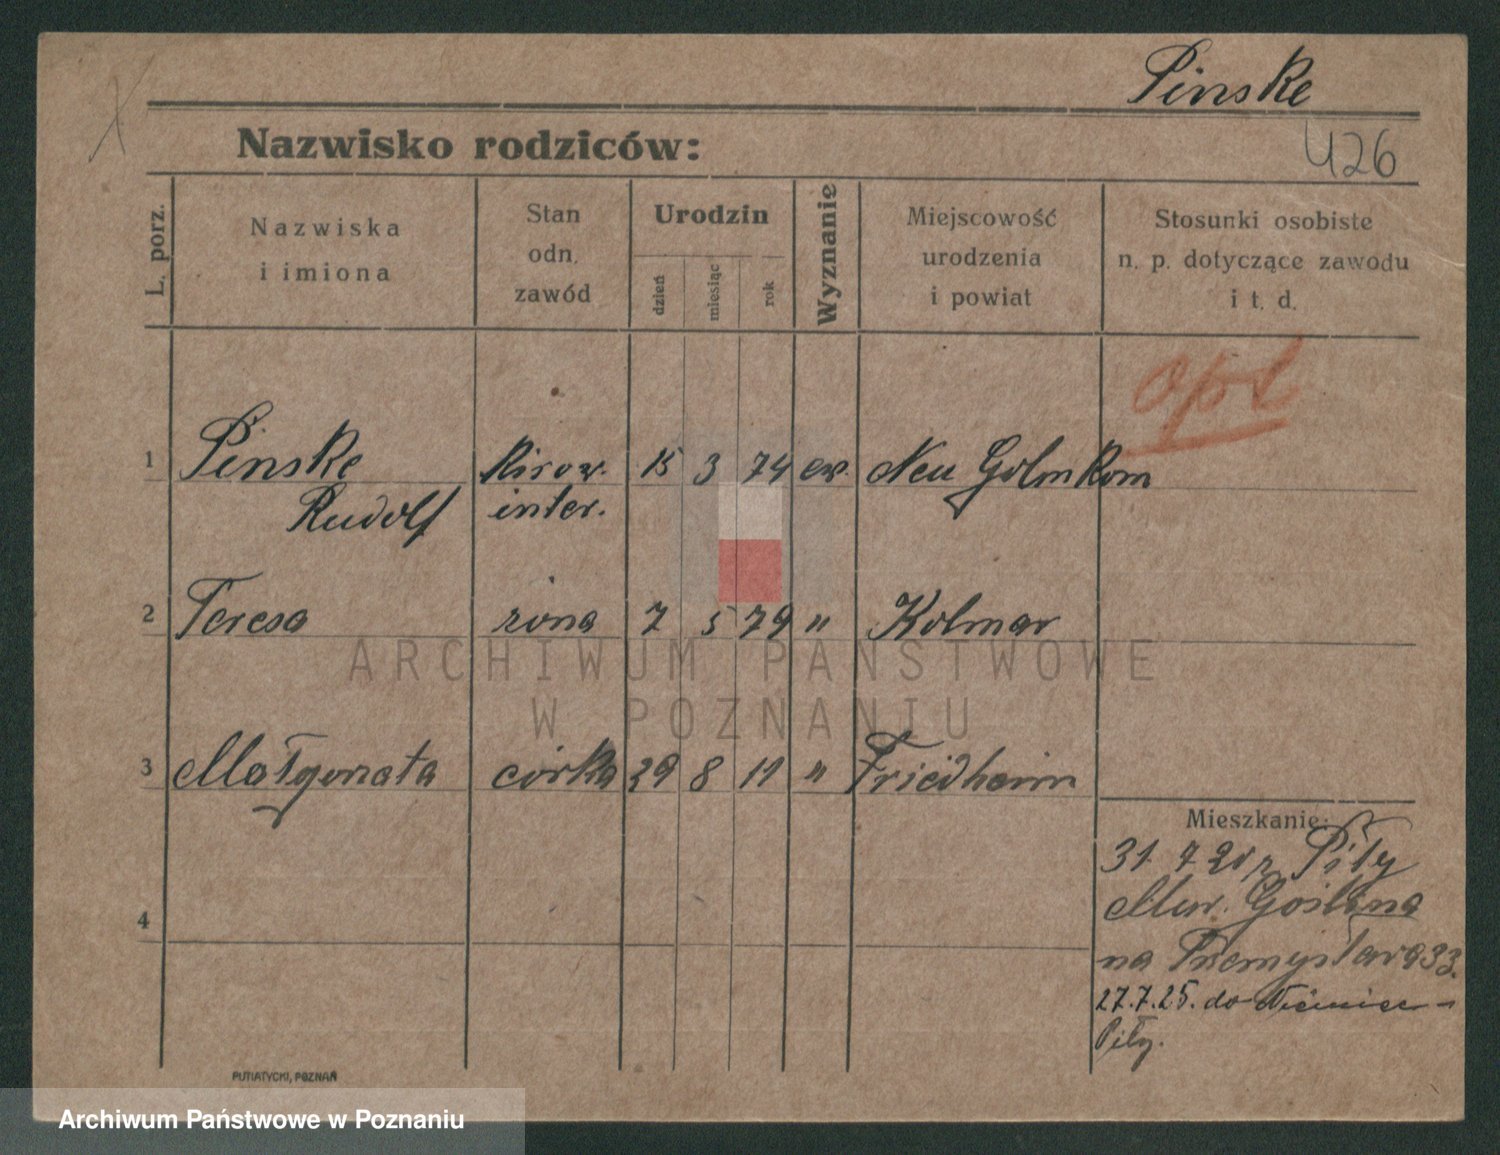 Pinske
Nazwisko rodziców:
426
L. porz.
Nazwiska
i imiona
Stan
odn.
zawód
Urodzin
dzień
miesiąc
rok
Wyznanie
Miejscowość
urodzenia
i powiat
Stosunki osobiste
n. p. dotyczące zawodu
i t. d.
opt
1 Pinske kirow. 15 3 74 ew. Neu Golmkom
Rudolf inter.
2 Teresa żona 7 5 79 " Kolmar
3 Małgorzata córka 29 8 11 " Friedheim
4
Mieszkanie:
31 7 20 z Piły
Mur. Goślina
na Przemysława 33.
27.7.25. do Niemiec -
Piły.
PUTIATYCKI, POZNAŃ
ARCHIWUM PAŃSTWOWE
W POZNANIU
Archiwum Państwowe w Poznaniu